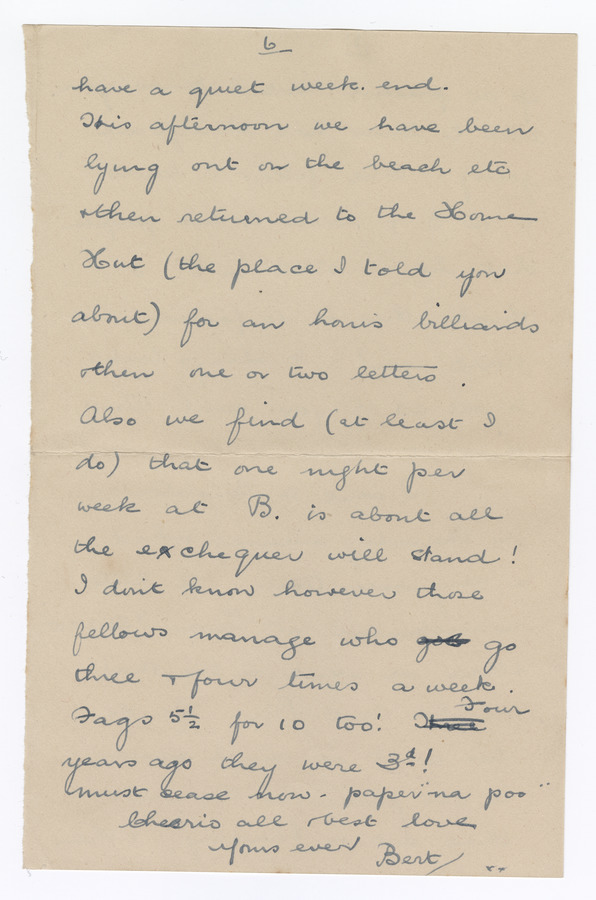 6
have a quiet week. end.
This afternoon we have been
lying out on the beach etc
+then returned to the Home
Hut (the place I told you
about) for an hour's billiards
+then one or two letters.
Also we find (at least I
do) that one night per
week at B. is about all
the exchequer will stand!
I don't know however those
fellows manage who go
three + four times a week.
Fags 5½ for 10 too! Four
years ago they were 3d!
must cease now - paper "na poo"
Cheerio all +best love
Yours ever Bert/